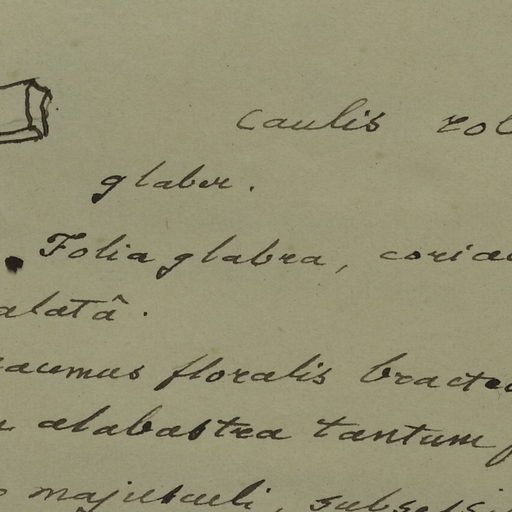 Caulis
glaber.
Folia glabra, coriac
alatâ.
racemus floralis bractea
alabastra tantum
majusculi, subsessi